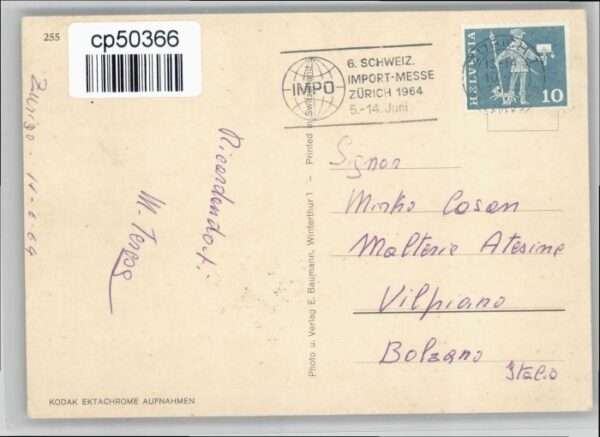 255
cp50366
6. SCHWEIZ.
IMPORT-MESSE
ZÜRICH 1964
5.-14. Juni
IMPO
HELVETIA
10
Zurigo - 11-6-64
Ricordandoti
M.
Printed in Switzerland
Photo u. Verlag E. Baumann, Winterthur 1 –
Signor
Mirko Casan
Malteria Atesina
Vilpiano
Bolzano
Italia
KODAK EKTACHROME AUFNAHMEN